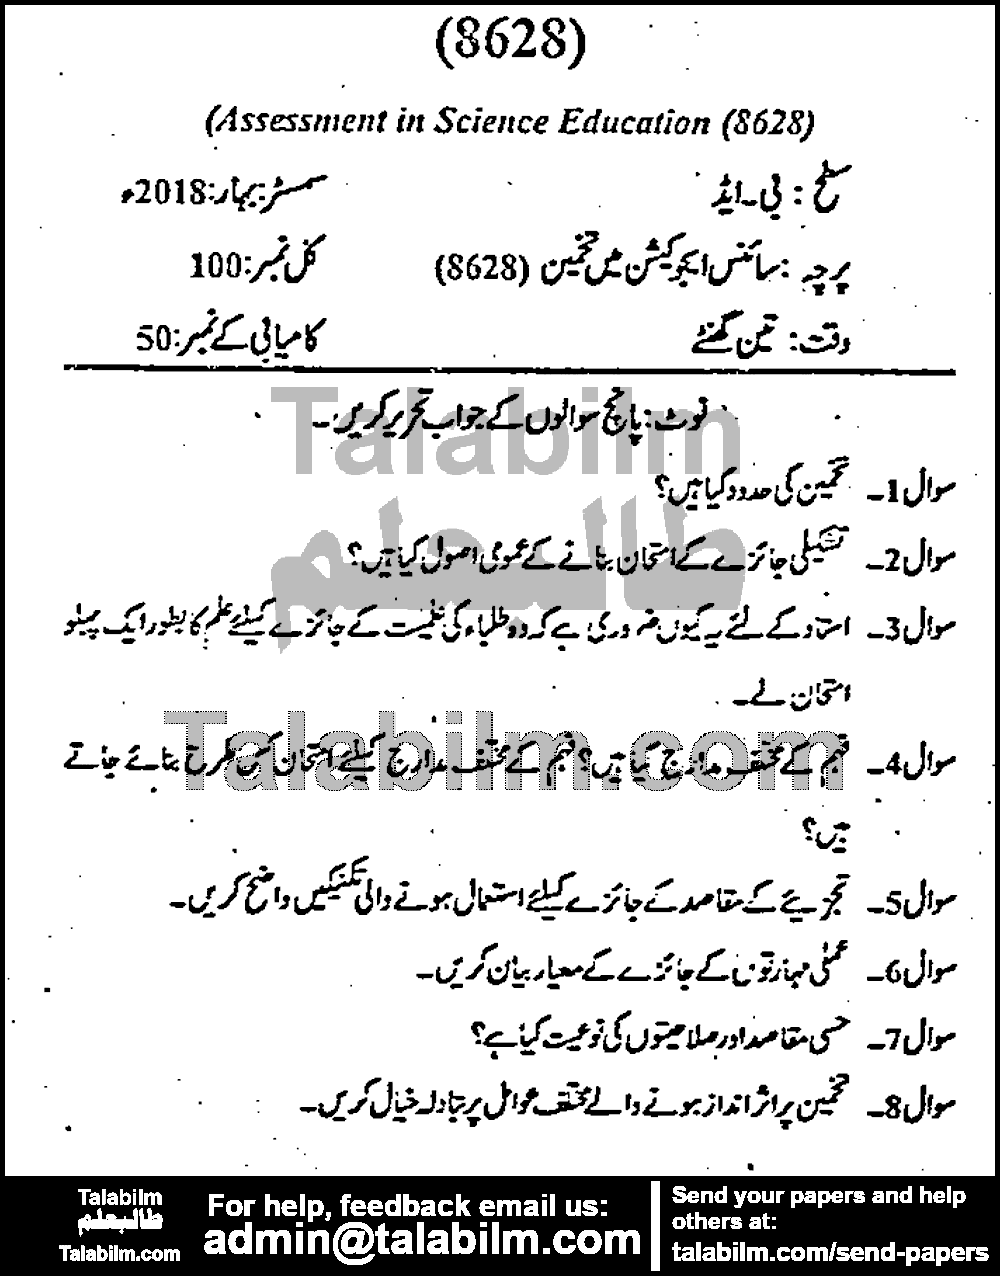 (8628)
(Assessment in Science Education (8628)
سطح: بی۔ایڈ سمسٹر: بہار: 2018ء
پرچہ: سائنس ایجوکیشن میں تخمین (8628) کل نمبر: 100
وقت: تین گھنٹے کامیابی کے نمبر: 50
نوٹ: پانچ سوالوں کے جواب تحریر کریں۔
سوال 1۔ تخمین کی حدود کیا ہیں؟
سوال 2۔ تشکیلی جائزے کے امتحان بنانے کے عمومی اصول کیا ہیں؟
سوال 3۔ استاد کے لئے یہ کیوں ضروری ہے کہ وہ طلباء کی علمیت کے جائزے کیلئے علم کا بطور ایک پہلو
امتحان لے۔
سوال 4۔ فہم کے مختلف مدارج کیا ہیں؟ فہم کے مختلف مدارج کیلئے امتحان کس طرح بنائے جاتے
ہیں؟
سوال 5۔ تجزیئے کے مقاصد کے جائزے کیلئے استعمال ہونے والی تکنیکیں واضح کریں۔
سوال 6۔ عملی مہارتوں کے جائزے کے معیار بیان کریں۔
سوال 7۔ حسی مقاصد اور صلاحیتوں کی نوعیت کیا ہے؟
سوال 8۔ تخمین پر اثر انداز ہونے والے مختلف عوامل پر تبادلہ خیال کریں۔
Talabilm
طالبعلم
Talabilm.com
Talabilm
طالبعلم
Talabilm.com
For help, feedback email us:
admin@talabilm.com
Send your papers and help
others at:
talabilm.com/send-papers